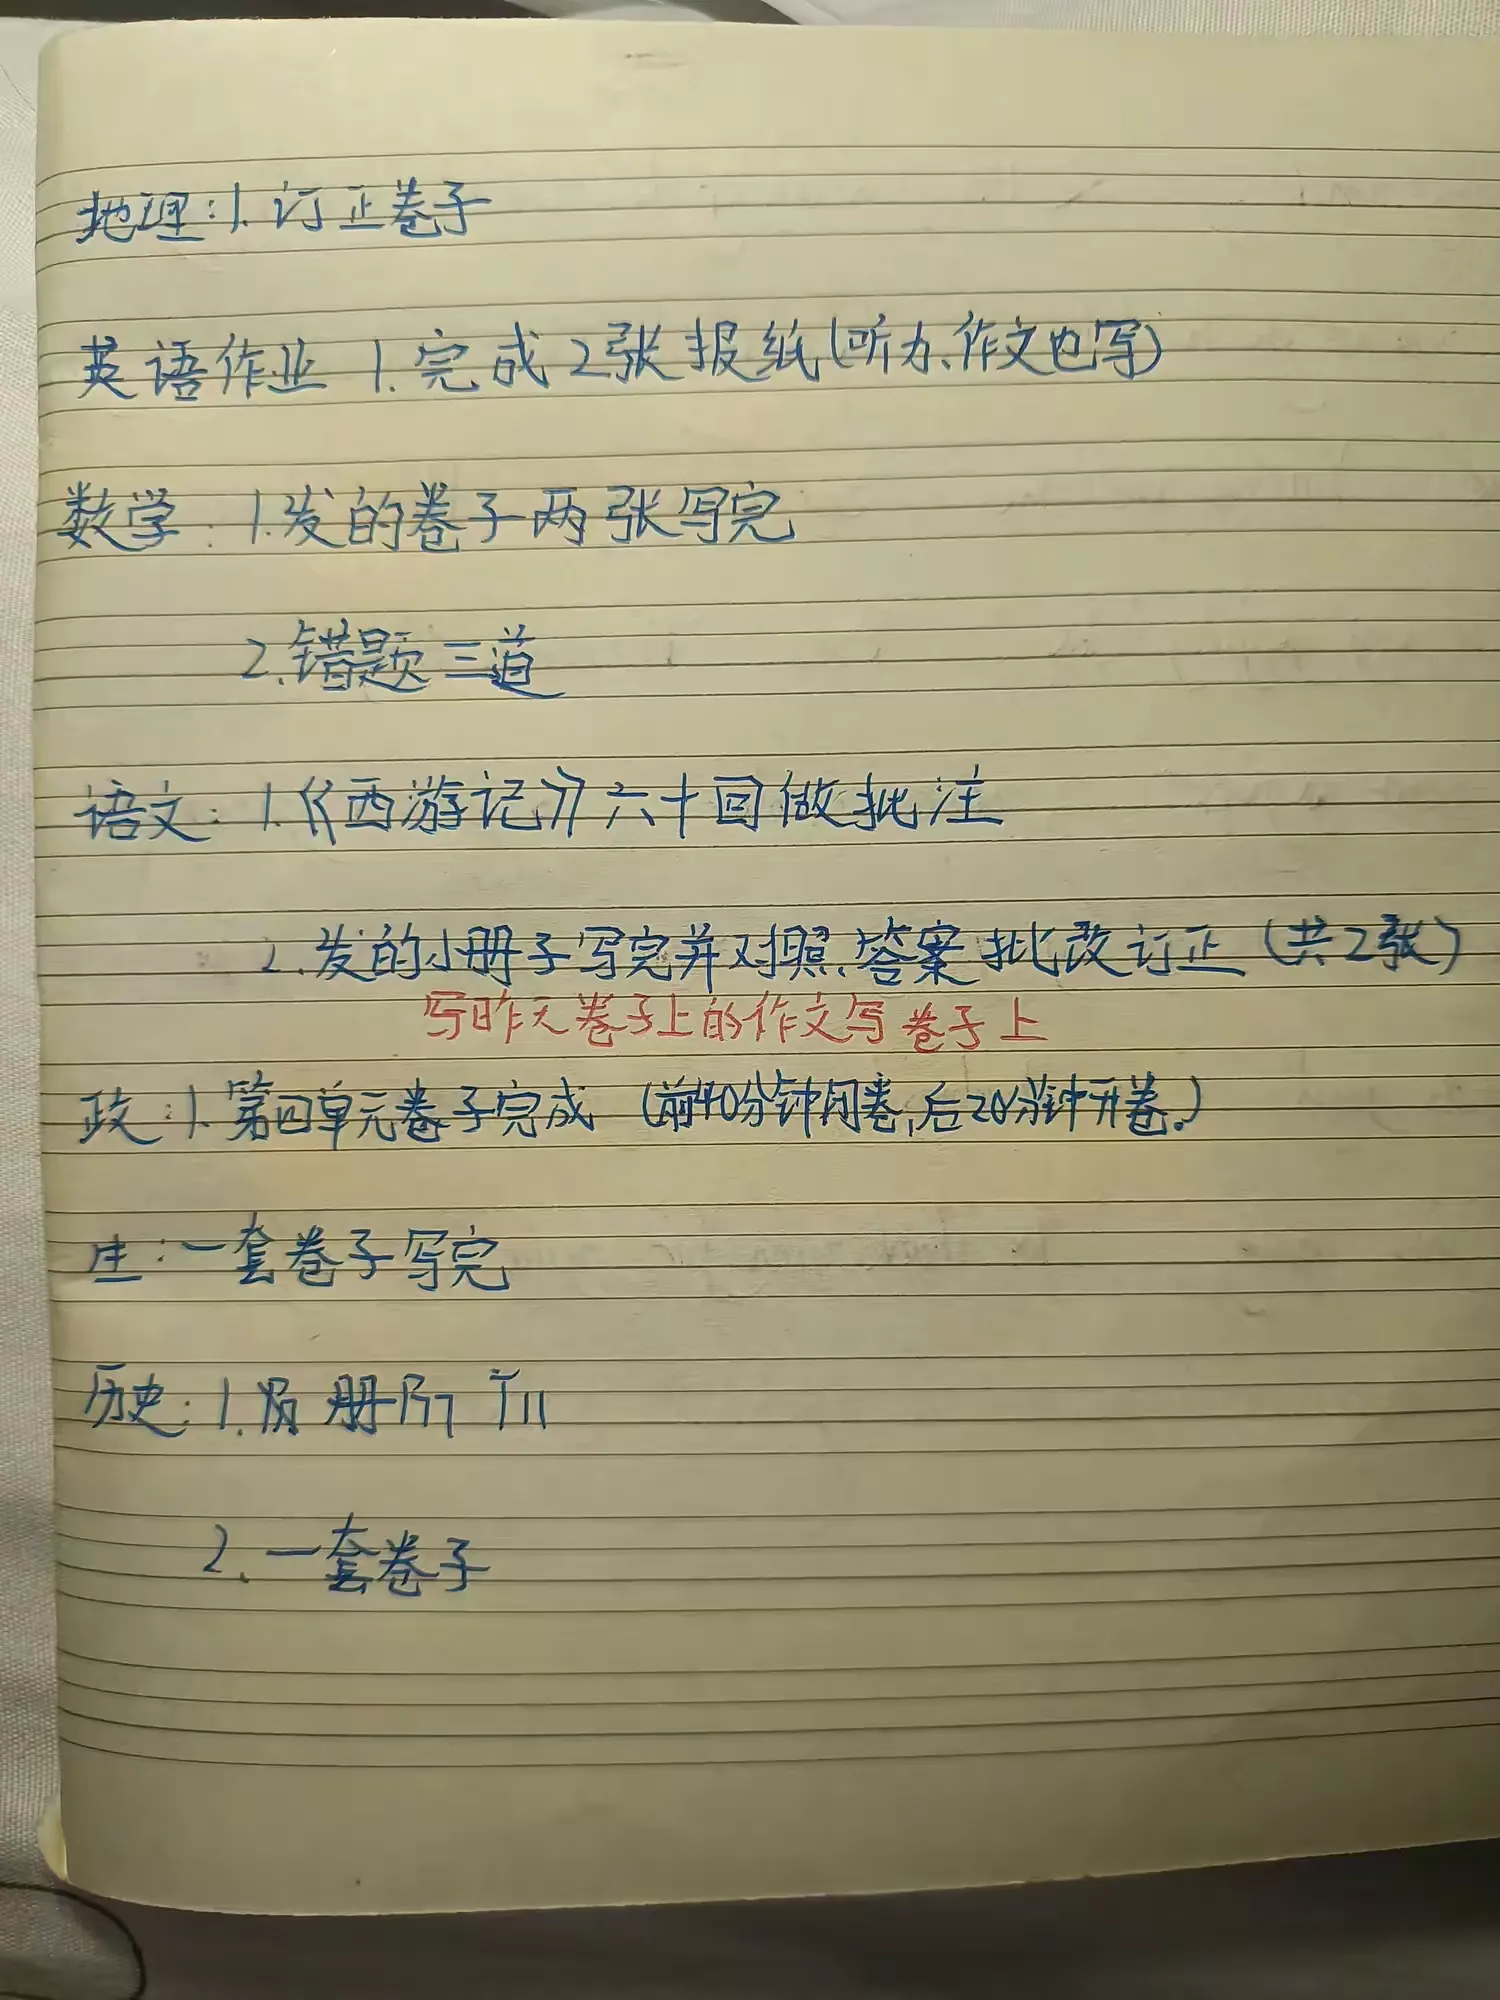 地理:1.订正卷子
英语作业 1.完成2张报纸(听力、作文也写)
数学:1.发的卷子两张写完
2.错题三道
语文:1.《西游记》六十回做批注
2.发的小册子写完并对照、答案批改订正(共2张)
写昨天卷子上的作文写卷子上
政:1.第四单元卷子完成 (前40分钟闭卷,后20分钟开卷。)
生:一套卷子写完
历史:1.
2.一套卷子